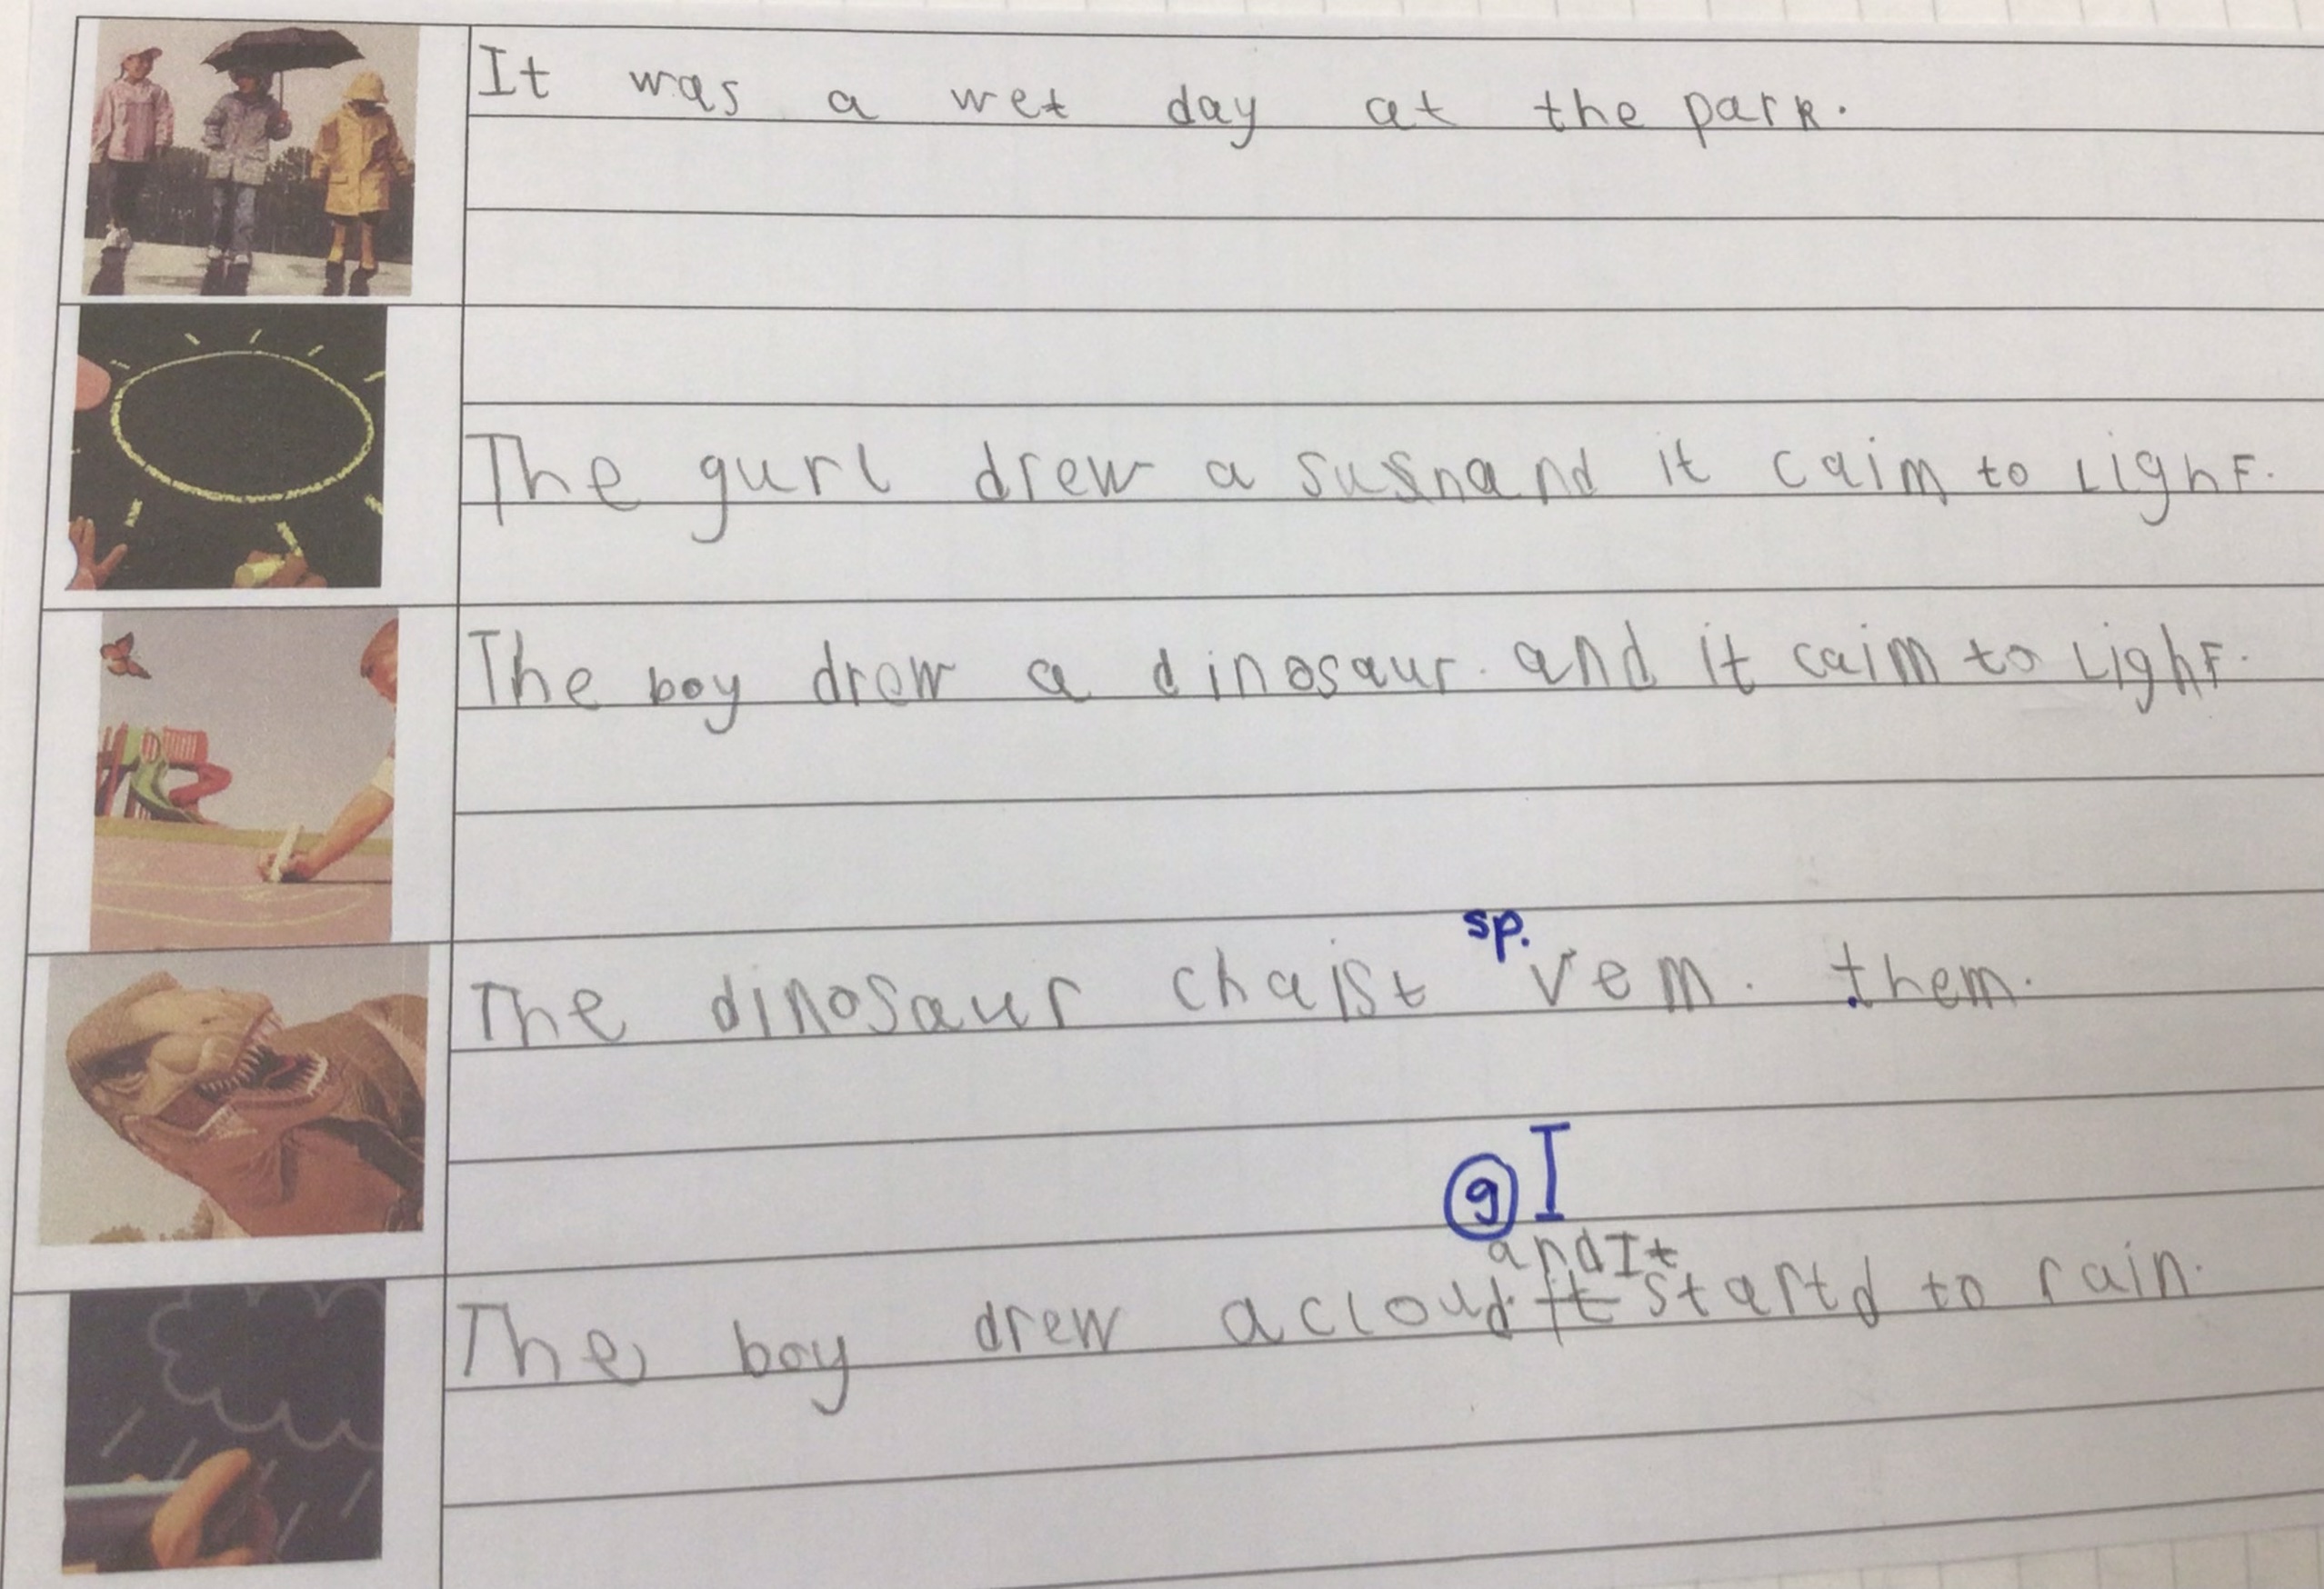 It was a wet day at the park.
The gurl drew a susnand it caim to Light.
The boy drow a dinosaur. and it caim to Light.
sp.
The dinosaur chaist vem. them.
g I
and It
The boy drew a cloud. it startd to rain.